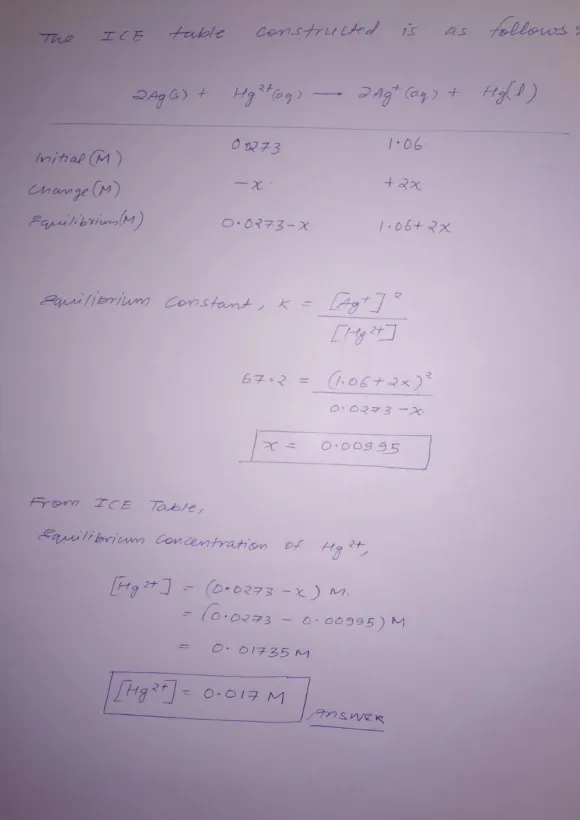 The ICE table constructed is as follows:
2Ag(s) + Hg²⁺(aq) → 2Ag⁺(aq) + Hg(l)
Initial(M) 0.0273 1.06
Change(M) -x +2x
Equilibrium(M) 0.0273-x 1.06+2x
Equilibrium Constant, K = [Ag⁺]² / [Hg²⁺]
67.2 = (1.06+2x)² / 0.0273-x
x = 0.00995
From ICE Table,
Equilibrium Concentration of Hg²⁺,
[Hg²⁺] = (0.0273-x) M.
= (0.0273 - 0.00995) M
= 0.01735 M
[Hg²⁺] = 0.017 M
Answer